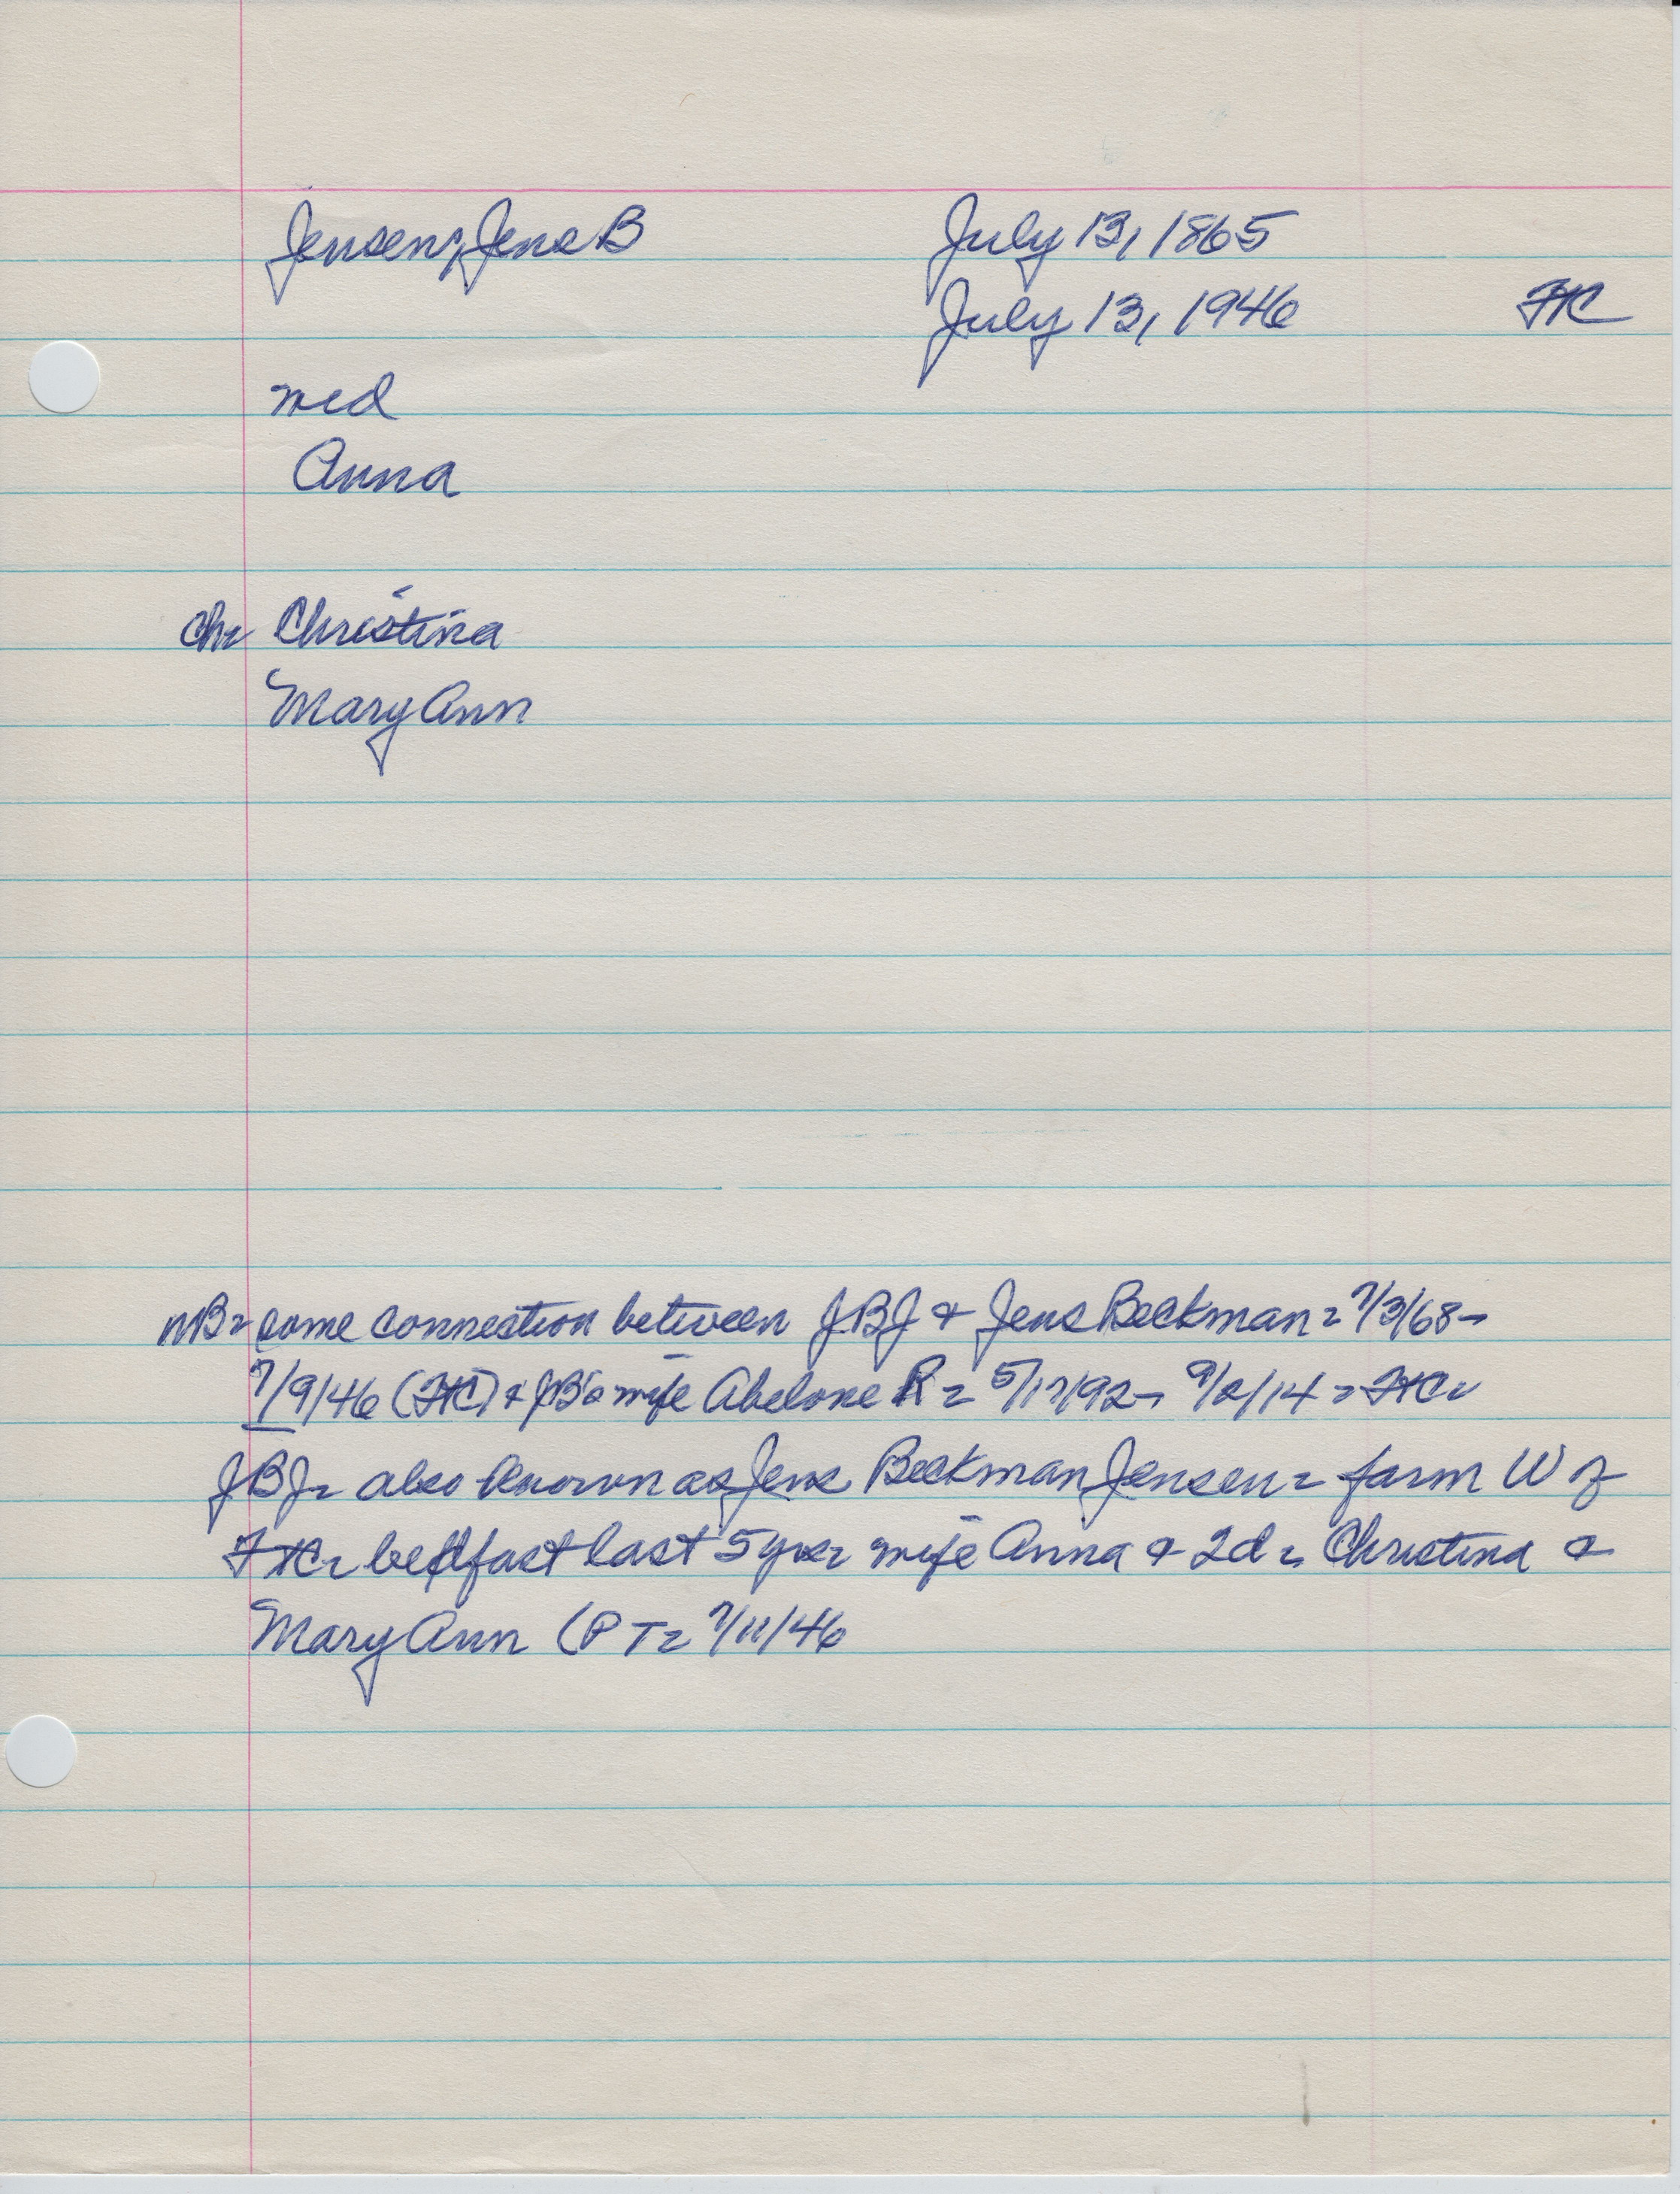 Jensen, Jens B July 13, 1865
July 13, 1946 FC
med
Anna
ch- Christina
Mary Ann
NB- some connection between JBJ & Jens Beckman - 7/3/68-
7/9/46 (FC) & JB's wife Abelone R - 5/17/92- 9/2/14 - FC-
JBJ- also known as Jens Beckman Jensen - farm W of
FC- bedfast last 5 yrs- wife Anna & 2d - Christina &
Mary Ann (PT - 7/11/46